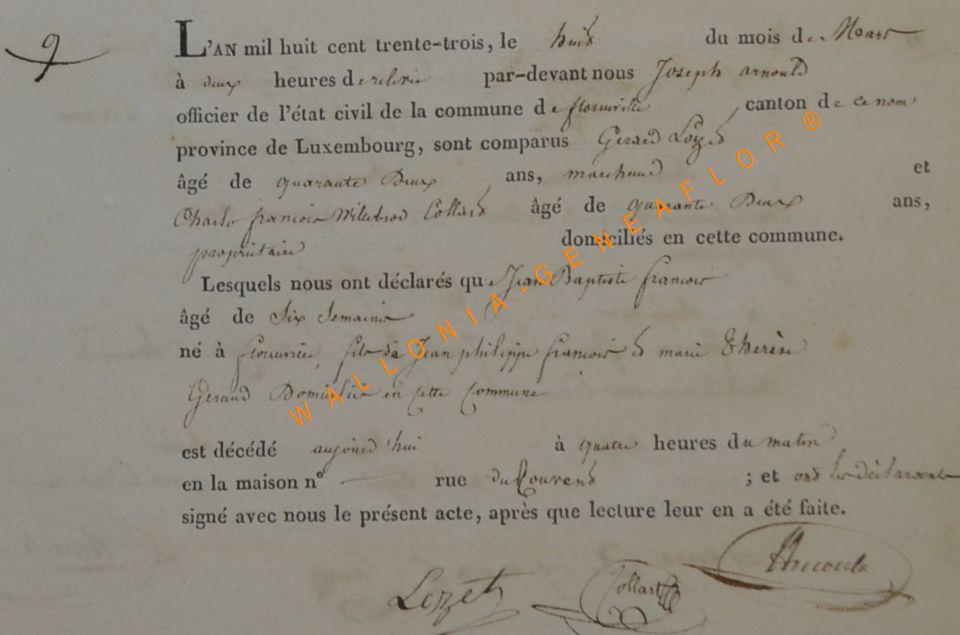 9
L'AN mil huit cent trente-trois, le huit du mois de Mars
à deux heures de relevée par-devant nous Joseph arnould
officier de l'état civil de la commune de florenville, canton de ce nom
province de Luxembourg, sont comparus Gerard Lozet
âgé de quarante Deux ans, marchand et
Charle francois Willebrod Collard âgé de quarante Deux ans,
propriétaire domiciliés en cette commune.
Lesquels nous ont déclarés que Jean Baptiste francois
âgé de Six Semaines
né à fils de Jean philippe francois et marie Therèse
Geraud Domicilié en cette Commune
est décédé aujourd'hui à quatre heures du matin
en la maison n° — rue du Couvent ; et ont les déclarants
signé avec nous le présent acte, après que lecture leur en a été faite.
Lozet Collart
WALLONIA-GENEAFLOR ®